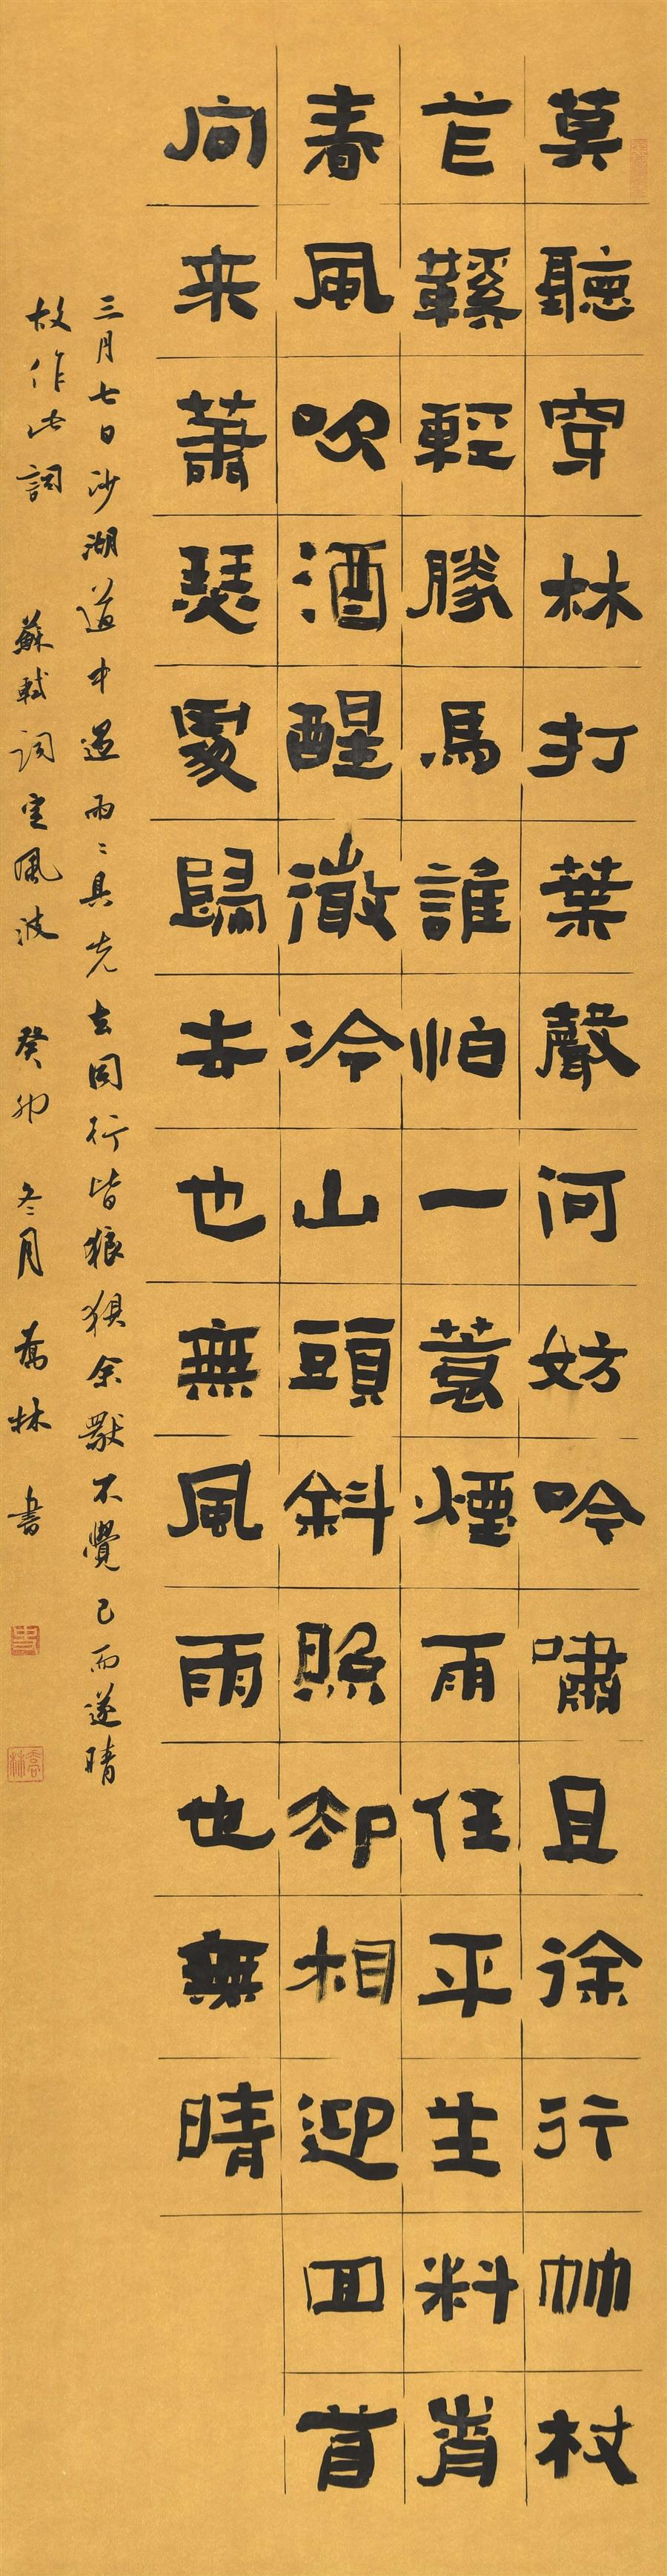 莫聽穿林打葉聲何妨吟嘯且徐行竹杖
芒鞵輕勝馬誰怕一蓑煙雨任平生料峭
春風吹酒醒微冷山頭斜照却相迎回首
向来蕭瑟處歸去也無風雨也無晴
三月七日沙湖道中遇雨〻具先去同行皆狼狽余獨不覺已而遂晴
故作此詞 蘇軾詞定風波 癸卯 冬月 喬林 書
喬林